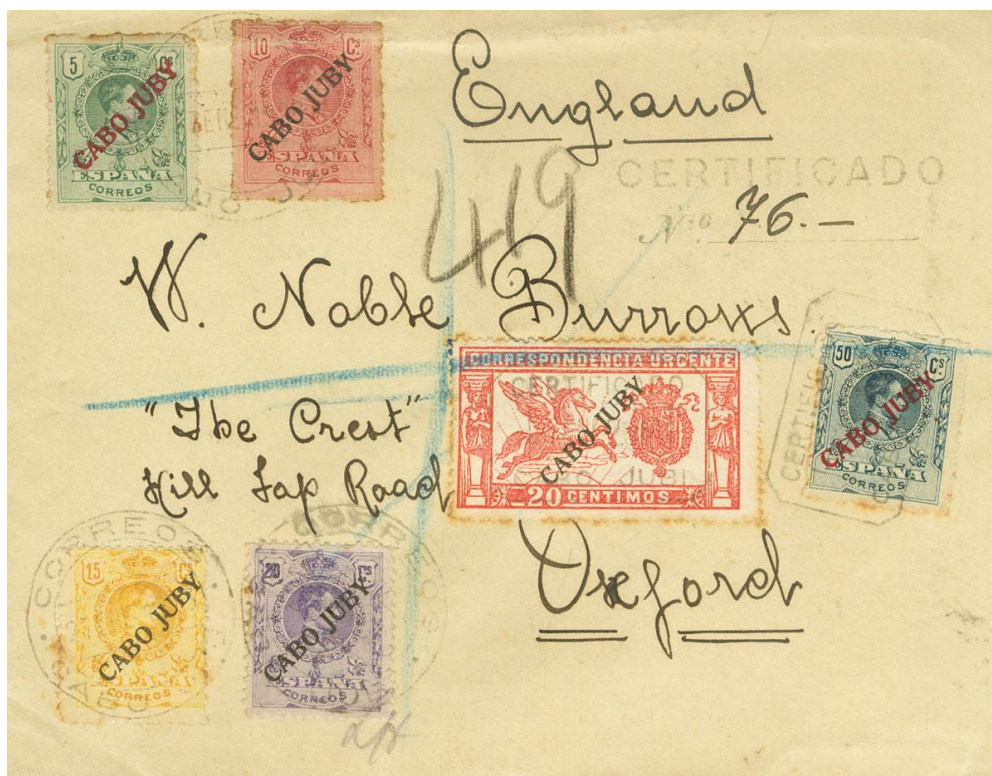 5 Cs
CABO JUBY
ESPAÑA
CORREOS
10 Cs
CABO JUBY
ESPAÑA
CORREOS
England
CERTIFICADO
Nro 76.-
419
W. Noble Burrows.
CORRESPONDENCIA URGENTE
CERTIFICADO
CABO JUBY
JUBI
20 CENTIMOS
50 Cs
CABO JUBY
ESPAÑA
CORREOS
CERTIFICADO
"The Crest"
Hill Tap Road
Oxford
CORREOS
15 Cs
CABO JUBY
ESPAÑA
CORREOS
CORREOS
20 Cs
CABO JUBY
ESPAÑA
CORREOS